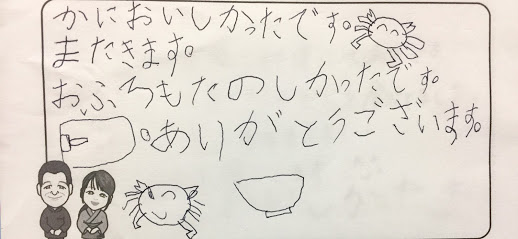 かにおいしかったです。
またきます。
おふろもたのしかったです。
。ありがとうございます。